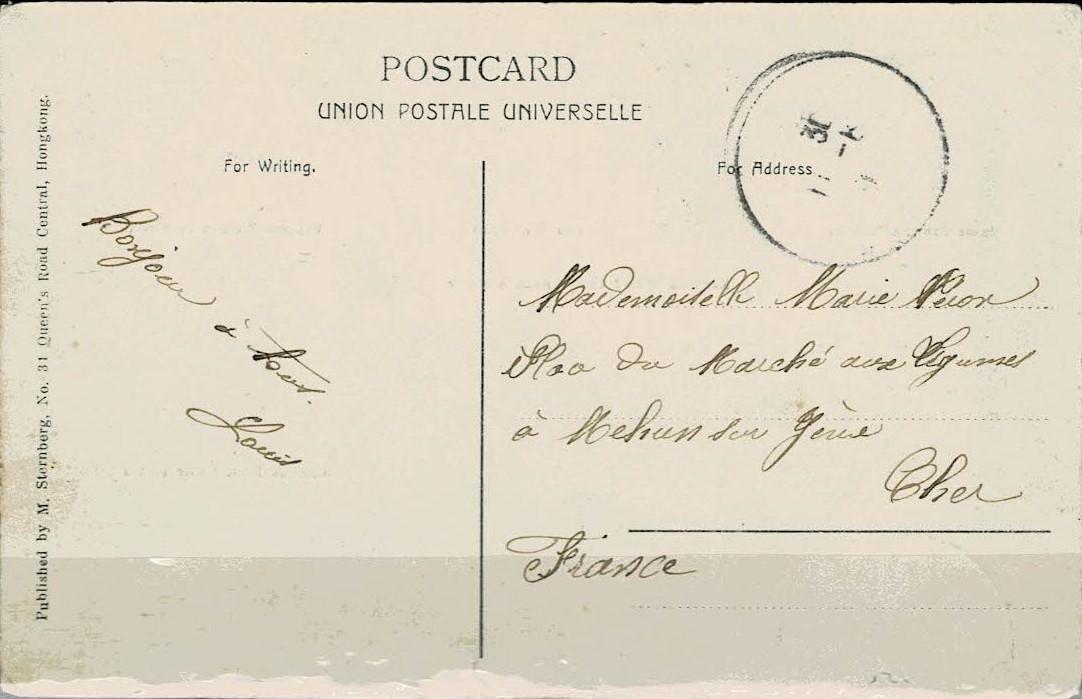 POSTCARD
UNION POSTALE UNIVERSELLE
For Writing.
For Address
Published by M. Sternberg, No. 31 Queen's Road Central, Hongkong.
Bonjour
à tous.
Louis
Mademoiselle Marie
Place du Marché aux Légumes
à Mehun sur Yèvre
Cher
France